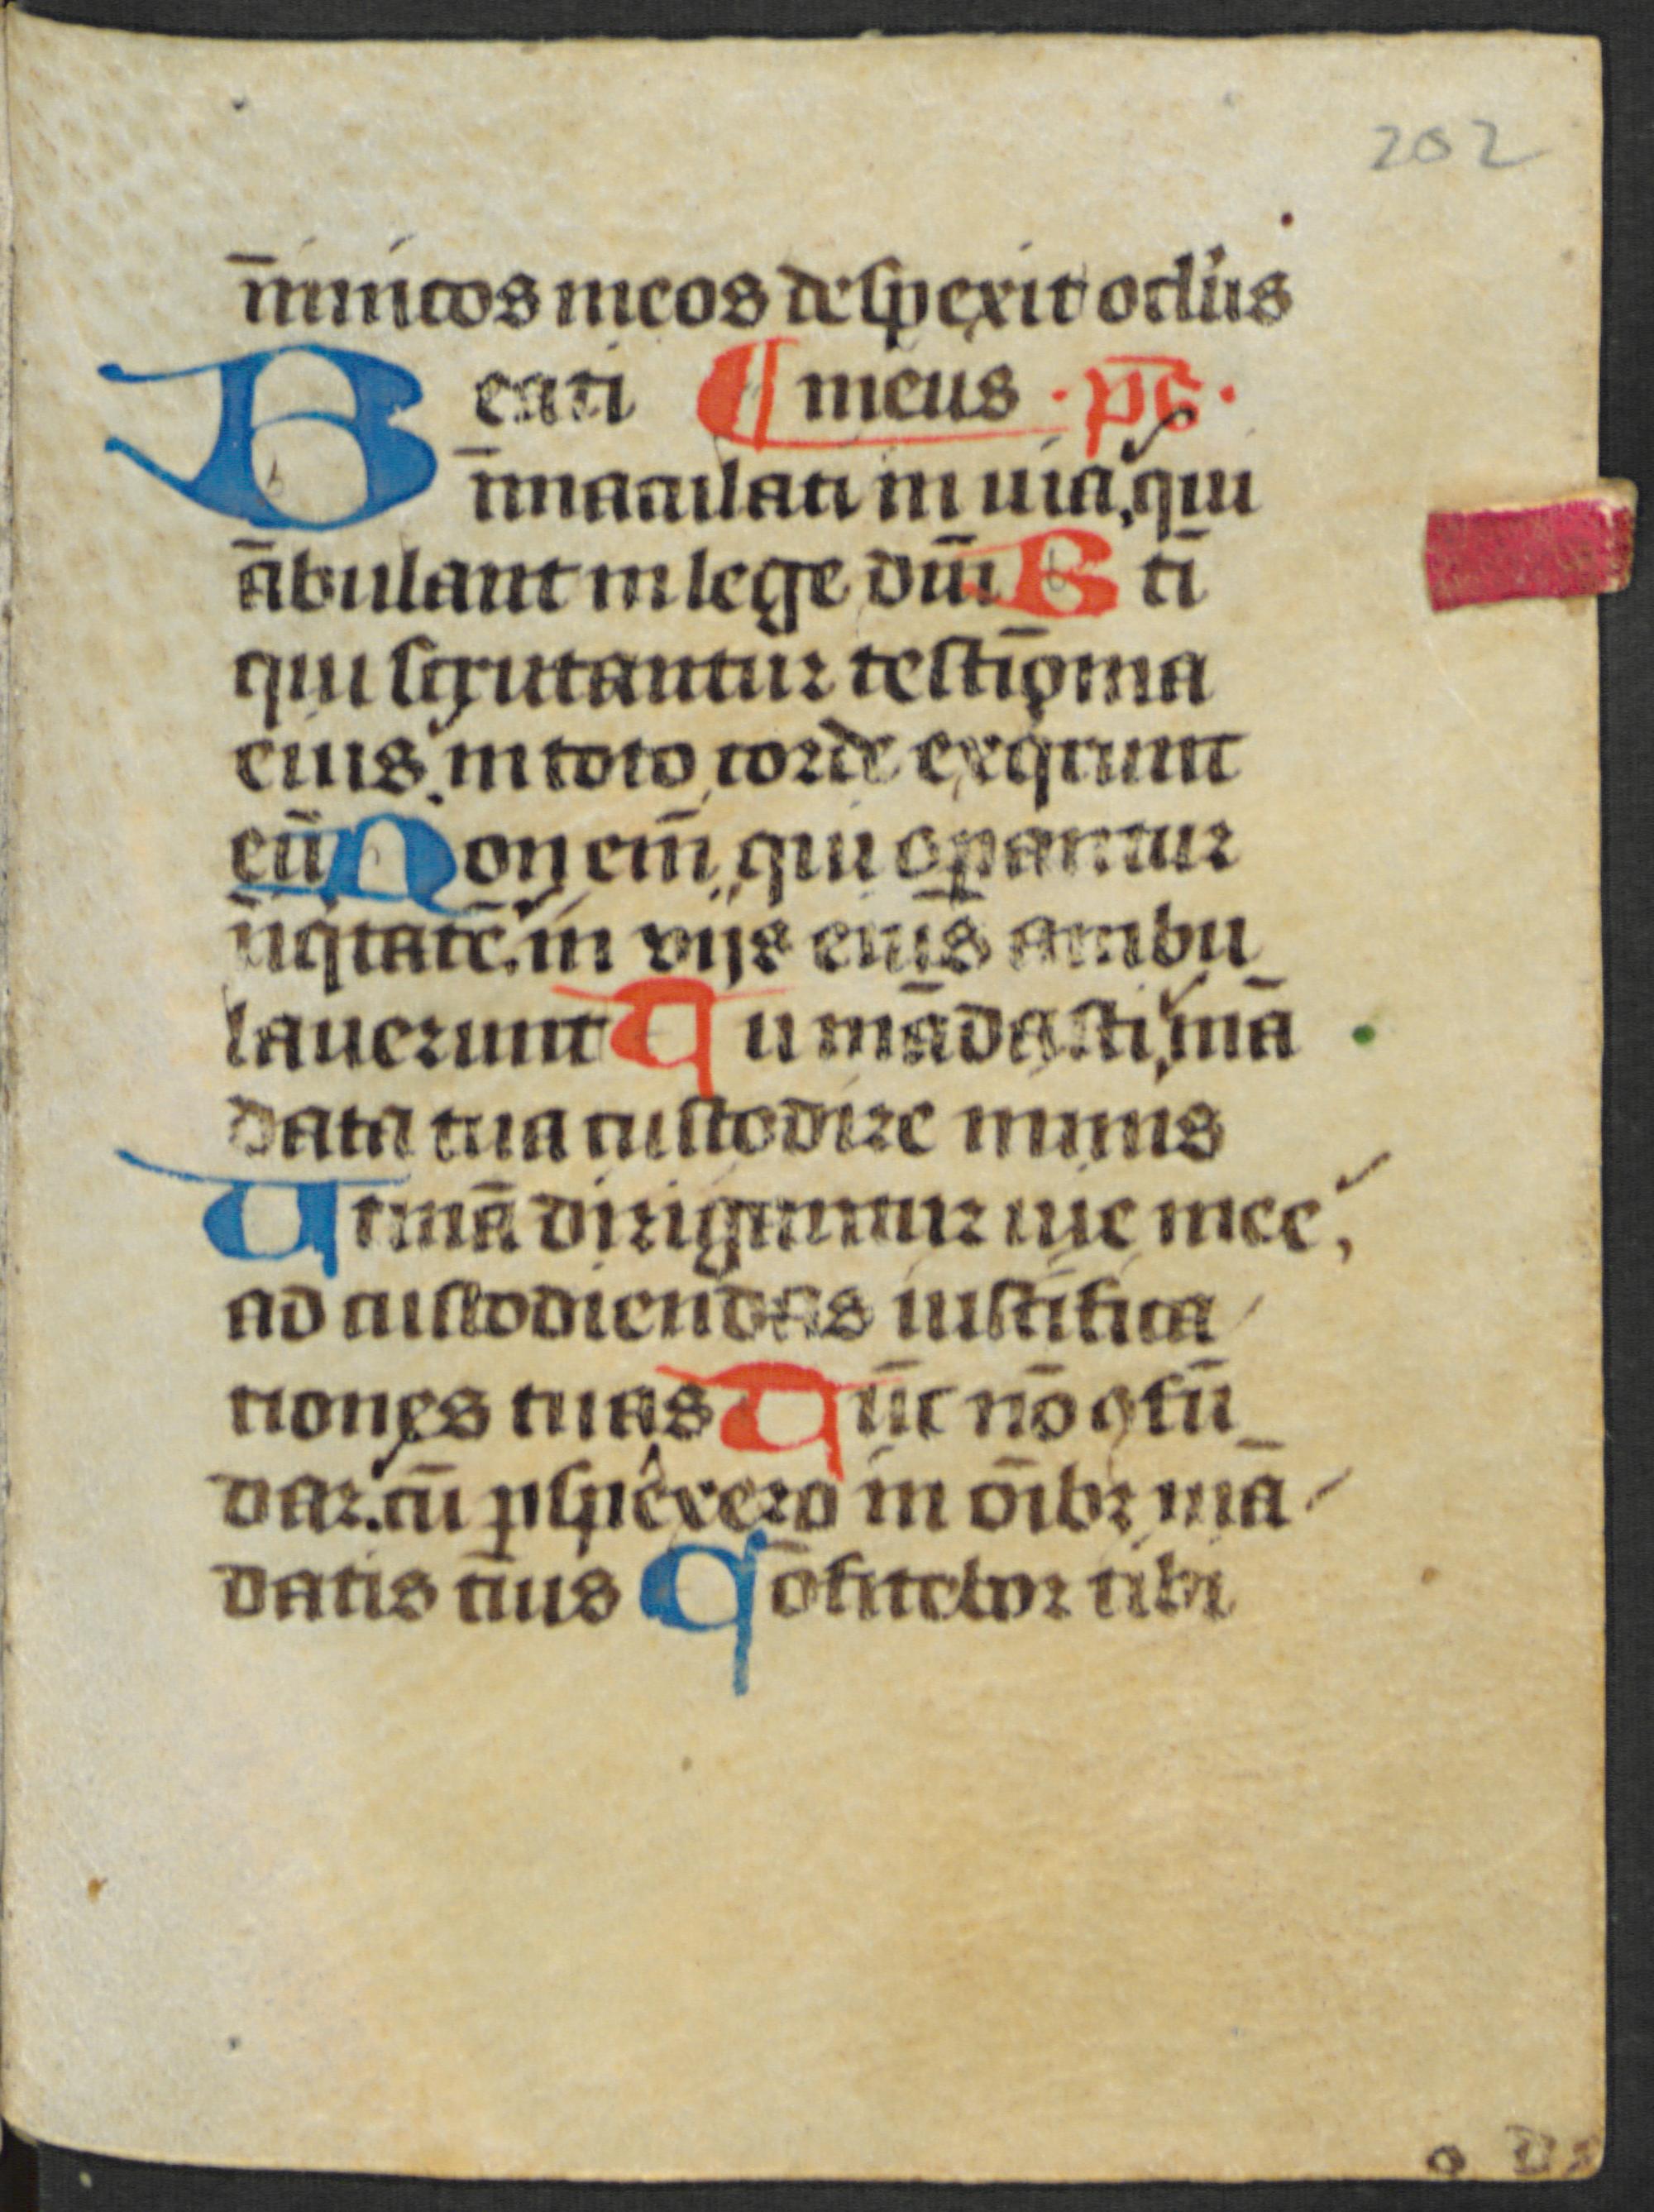 202
īnimicos meos despexit oculus
Beati ¶ meus · p̄s ·
īmaculati in uia, qui
ābulant in lege dn̄i Bti
qui scrutantur testīonia
eius. in toto corde exqirunt
eū Non eni̅ qui opantur
iniqitatē. in vijs eius ambu
lauerunt Tu mādasti, mā
data tua custodire nimis
Utinā dirigantur uie mee,
ad custodiendas iustifica
tiones tuas Tūc nō ꝯfū
dar. cū pspexero in oībꝫ mā
datis tuis Cōfitebor tibi